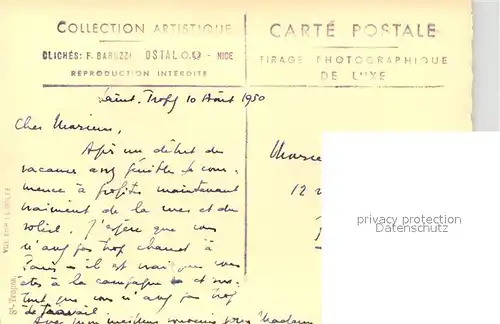 COLLECTION ARTISTIQUE
CLICHÉS: F. BARUZZI OSTALO - NICE
REPRODUCTION INTERDITE
CARTE POSTALE
TIRAGE PHOTOGRAPHIQUE
DE LUXE
Saint-Trop 10 Août 1950
Cher Monsieur,
Après un début de
vacances assez pénible je com-
mence à profiter maintenant
vraiment de la mer et du
soleil. J'espère que vous
n'avez pas trop chaud à
Paris - il est vrai que vous
êtes à la campagne et sur-
tout que vous n'ayez pas trop
de travail
Avec mon meilleur souvenir pour Madame
12
privacy protection
St-Tropez